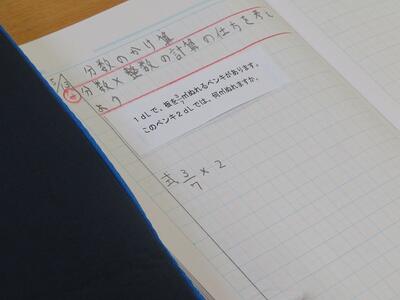 分数のかけ算
分数×整数の計算の仕方を考え
よう
1dLで、板を3/7㎡ぬれるペンキがあります。
このペンキ2dLでは、何㎡ぬれますか。
式 3/7 × 2